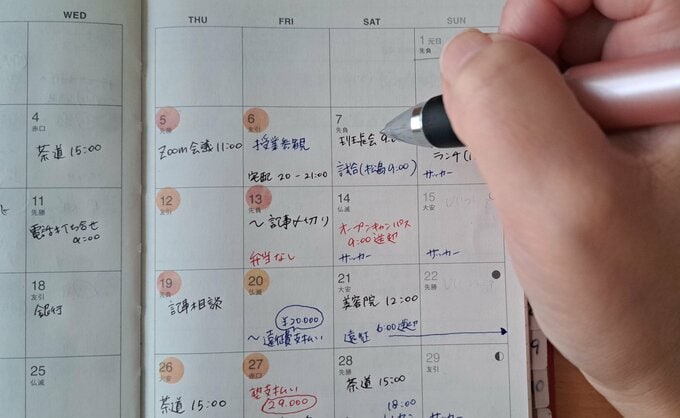 WED THU FRI SAT SUN
1 元日
先負
4
赤口
茶道 15:00
5
先勝
Zoom会議 11:00
6
友引
授業参観
宅配 20-21:00
7
先負
試合(松島9:00)
ランチ(1
サッカー
11
先勝
電話打ち合せ
12
友引
13
先負
〜記事〆切り
弁当なし
14
仏滅
オープンキャンパス
9:00送迎
サッカー
15
大安
サッカー
18
友引
銀行
19
先負
記事相談
20
仏滅
¥20.000
〜遠征費支払い
21
大安
美容院 12:00
遠征 6:00送迎
22
先勝
25
仏滅
26
大安
茶道 15:00
27
赤口
塾支払い
29.000
28
先勝
茶道 15:00
18:00
29
友引
9
10